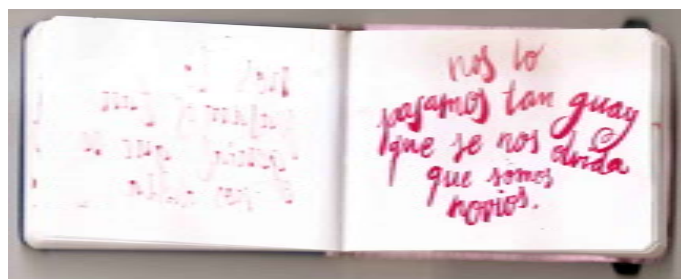 nos lo
pasamos tan guay
que se nos olvida
que somos
novios.